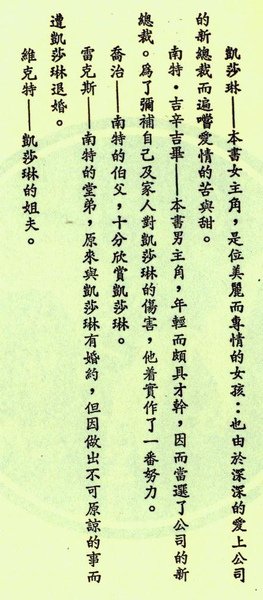 凱莎琳——本書女主角，是位美麗而專情的女孩：也由於深深的愛上公司
的新總裁而遍嚐愛情的苦與甜。
南特・吉辛吉畢——本書男主角，年輕而頗具才幹，因而當選了公司的新
總裁。爲了彌補自己及家人對凱莎琳的傷害，他着實作了一番努力。
喬治——南特的伯父，十分欣賞凱莎琳。
雷克斯——南特的堂弟，原來與凱莎琳有婚約，但因做出不可原諒的事而
遭凱莎琳退婚。
維克特——凱莎琳的姐夫。